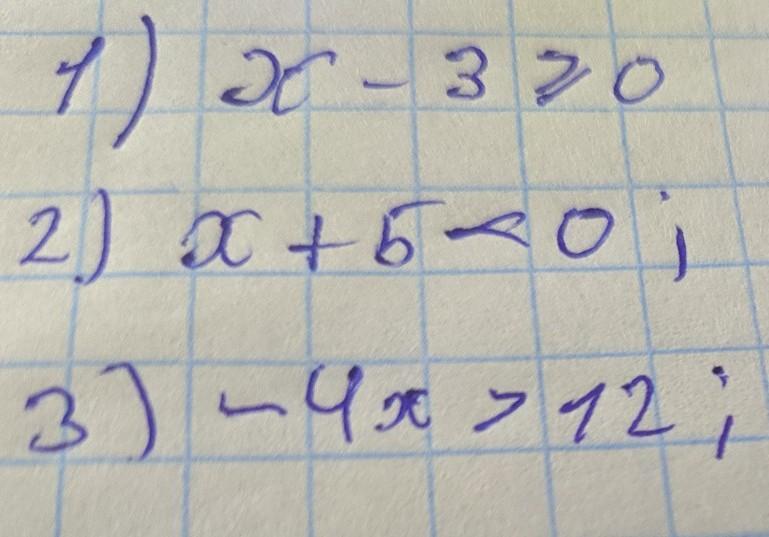 1) x - 3 ⩾ 0
2) x + 5 < 0 ;
3) - 4x > 12 ;